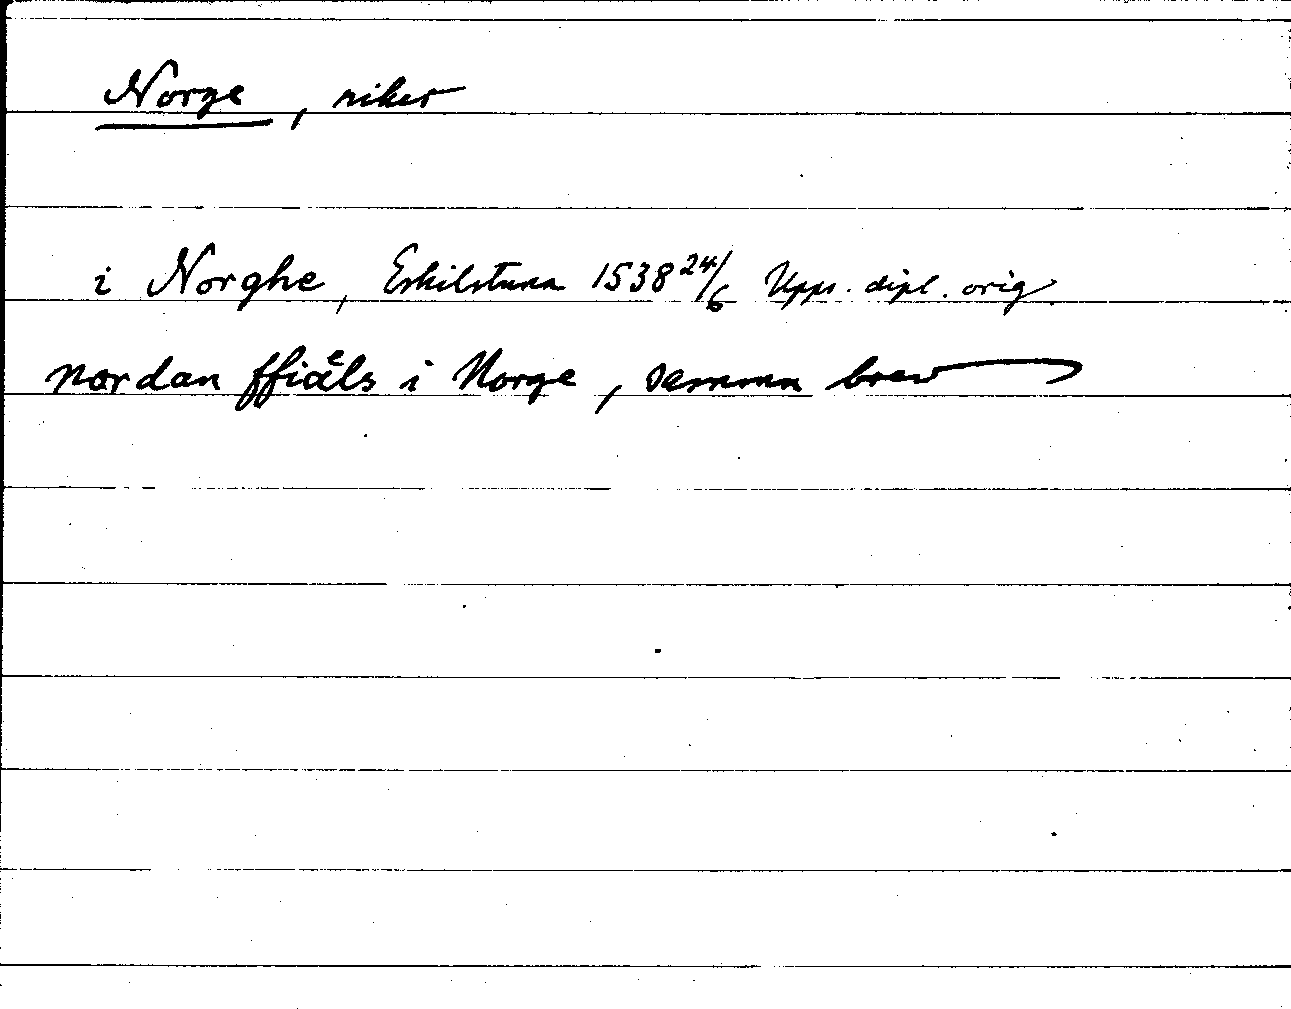 Norge, riket
i Norghe, Eskilstuna 1538 24/6 Upps. dipl. orig.
nordan ffiaͤls i Norge, samma brev